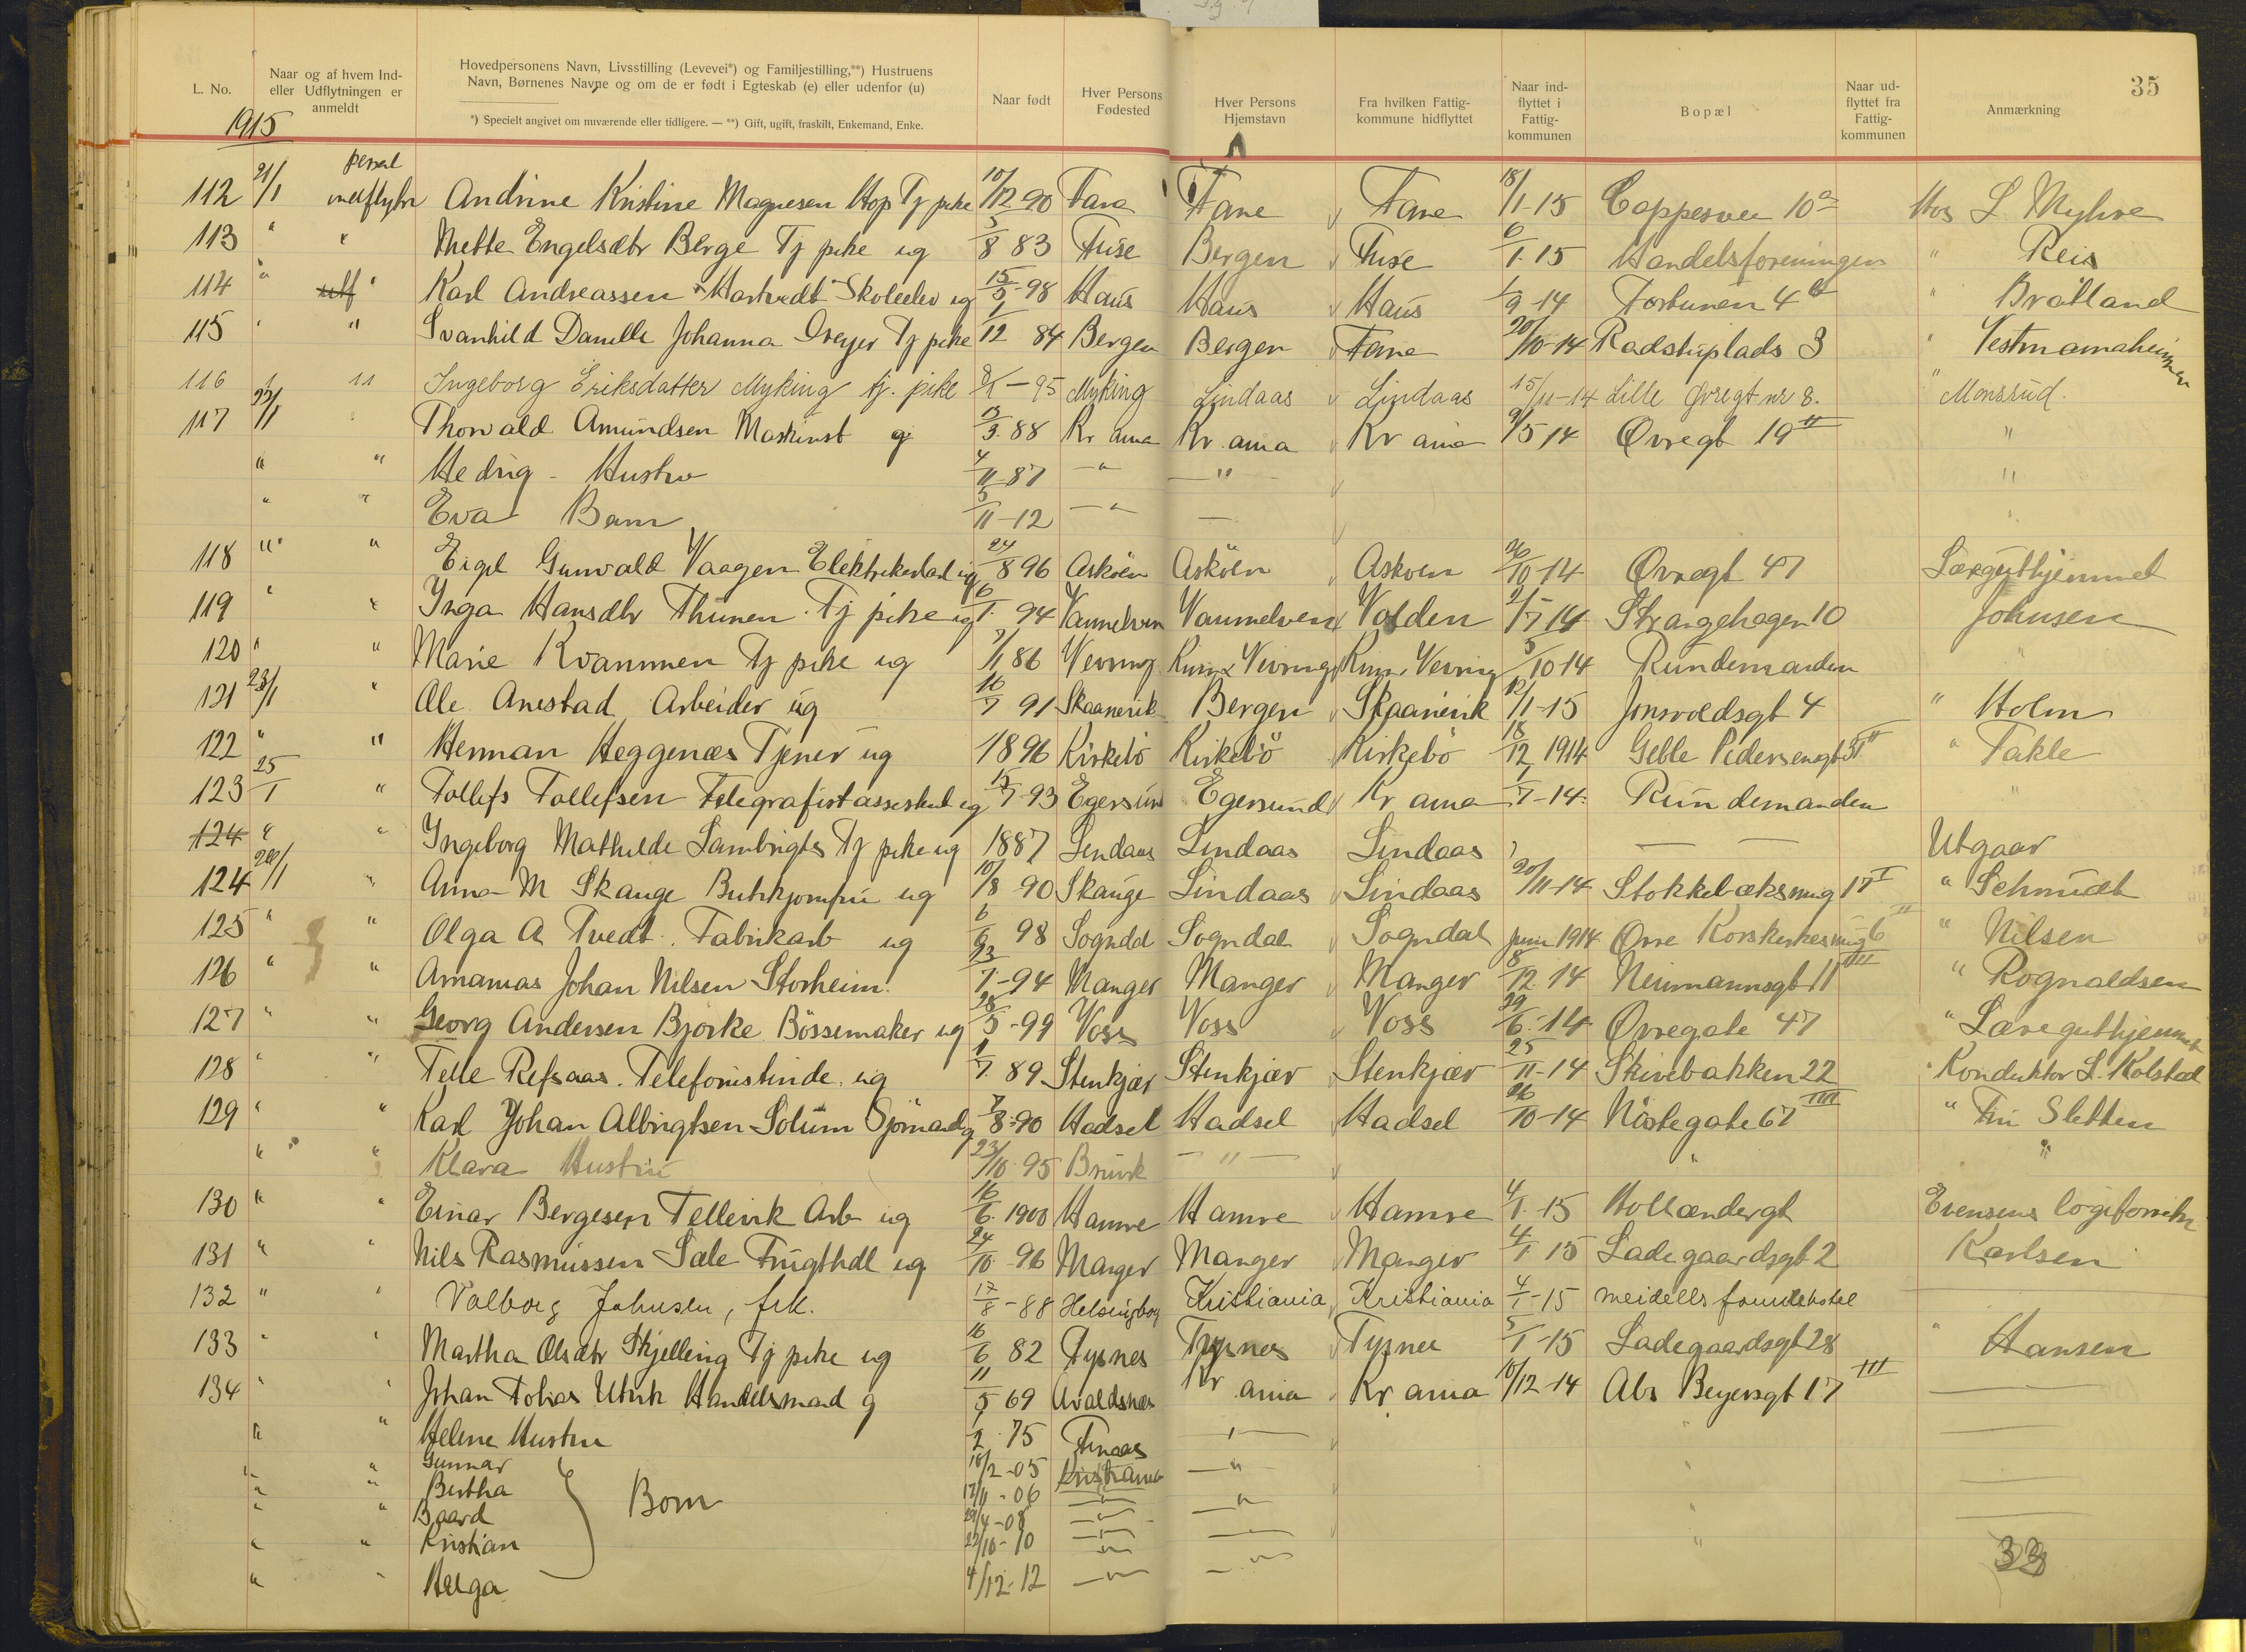 35
L. No.
Naar og af hvem Ind- eller Udflytningen er anmeldt
Hovedpersonens Navn, Livsstilling (Levevei*) og Familjestilling,**) Hustruens Navn, Børnenes Navne og om de er født i Egteskab (e) eller udenfor (u)
*) Specielt angivet om nuværende eller tidligere. — **) Gift, ugift, fraskilt, Enkemand, Enke.
Naar født
Hver Persons Fødested
Hver Persons Hjemstavn
Fra hvilken Fattig- kommune hidflyttet
Naar ind- flyttet i Fattig- kommunen
Bopæl
Naar ud- flyttet fra Fattig- kommunen
Anmærkning
1915
112 21/1 indflytn Andrine Kristine Magnesen Hop Tj pike 10/12 90 Fana Fane Fane 18/1-15 10a Hos L. Myhre
113 " " Mette Engelsdtr Berge Tj pike ug 5/8 83 Fuse Bergen Fuse 6/1-15 Handelsforeningen " Reis
114 " " Karl Andreassen Hartvedt Skoleelev ug 15/5-98 Haus Haus Haus 1/9-14 Fortunen 4b " Bratland
115 " " Svanhild Danelle Johanna Dreyer Tj pike 1/12 84 Bergen Bergen Fane 20/10-14 Raadstuplads 3 " Vestmannaheimen
116 " " Ingeborg Eriksdatter Myking tj. pike 95 Myking Lindaas Lindaas 15/11-14 Lille Øvregt nr 8. " Monsrud.
117 22/1 " Thorvald Amundsen Maskinist g 88 Kr ania Kr. ania Kr ania 9/5 14 Øvregt 19 II "
" " Hedvig - Hustru 4/11-87 " " "
" " Eva Barn 5/11-12 " "
118 " " Eigil Gunvald Vaagen ug 24/8 96 Askøen Askøen Askøen 26/10-14 Øvregt 47 Læreguthjemmet
119 " " Inga Hansdtr Thunen Tj pike ug 6/1 94 Vannelven Vannelven Volden 14 Strangehagen 10 Johnsen
120 " " Marie Kvammen Tj pike ug 7/1 86 Vevring Vevring Vevring 5/10 14 Rundemanden "
121 23/1 " Ole Anestad Arbeider ug 16/7 91 Skaanevik Bergen Skaanevik 12/1-15 Jonsvoldsgt 4 " Holm
122 " " Herman Heggenæs Tjener ug 1896 Kirkebö Kirkebö Kirkebö 18/12 1914 Gelle Pedersensgt " Takle
123 25/1 " Tollefs Tollefsen Telegrafistassistent ug 15/7-93 Egersund Egersund Kr ania 1/7-14 Rundemanden "
124 " " Ingeborg Mathilde Lambrigts Tj pike ug 1887 Lindaas Lindaas Lindaas — — Utgaar
124 26/1 " Anna M Skauge Butikjomfru ug 10/8 90 Skauge Lindaas Lindaas 20/11-14 Stokkebæksmug 17 I " Schmidt
125 " " Olga A Tvedt. Fabrikarb ug 98 Sogndal Sogndal Sogndal juni 1914 Øvre Korskirkesmug 6 II " Nilsen
126 " " Amanias Johan Nilsen Storheim. 23/7-94 Manger Manger Manger 8/12 14 Neumannsgt 11 IIII " Rognaldsen
127 " " Georg Andersen Bjørke Bössemaker ug 28/5-99 Voss Voss Voss 29/6-14 Øvregate 47 " Læreguthjemmet
128 " " Telle Refsaas. Telefonistinde ug 1/7 89 Stenkjær Stenkjær Stenkjær 25/11-14 Skivebakken 22 " Konduktør L. Kolstad
129 " " Karl Johan Albrigtsen Solum Sjömand g 7/8-90 Hadsel Hadsel Hadsel 26/10-14 Nöstegate 67 IIII " Fru Sletten
" " Klara Hustru 23/10 95 " " "
130 " " Einar Bergesen Tellevik Arb ug 16/6 1900 Hamre Hamre Hamre 4/1-15 Hollændergt Evensens
131 " " Nils Rasmussen Sæle Frugthdl ug 24/10 96 Manger Manger Manger 4/1 15 Ladegaardsgt 2 Karlsen
132 " " Valborg Johnsen, frk. 17/8-88 Helsingborg Kristiania Kristiania 4/1-15 meidells familiehotel
133 " " Martha Olsdtr Skjelling Tj pike ug 16/6 82 Tysnes Tysnes Tysnes 5/1-15 Ladegaardsgt 28 " Hansen
134 " " Johan Tobias Utvik Handelsmand g 11/5 69 Avaldsnes Kr. ania Kr ania 10/12-14 Abs Beyersgt 17 III —
" " Helene Hustru 1/2 75 Finaas " "
" " Gunnar 18/2-05 Kristiania "
" " Bertha 17/11-06 " "
" " Baard 29/4-08 " "
Born
" " Kristian 22/10-10 " "
" " Helga 4/12-12 " "
33